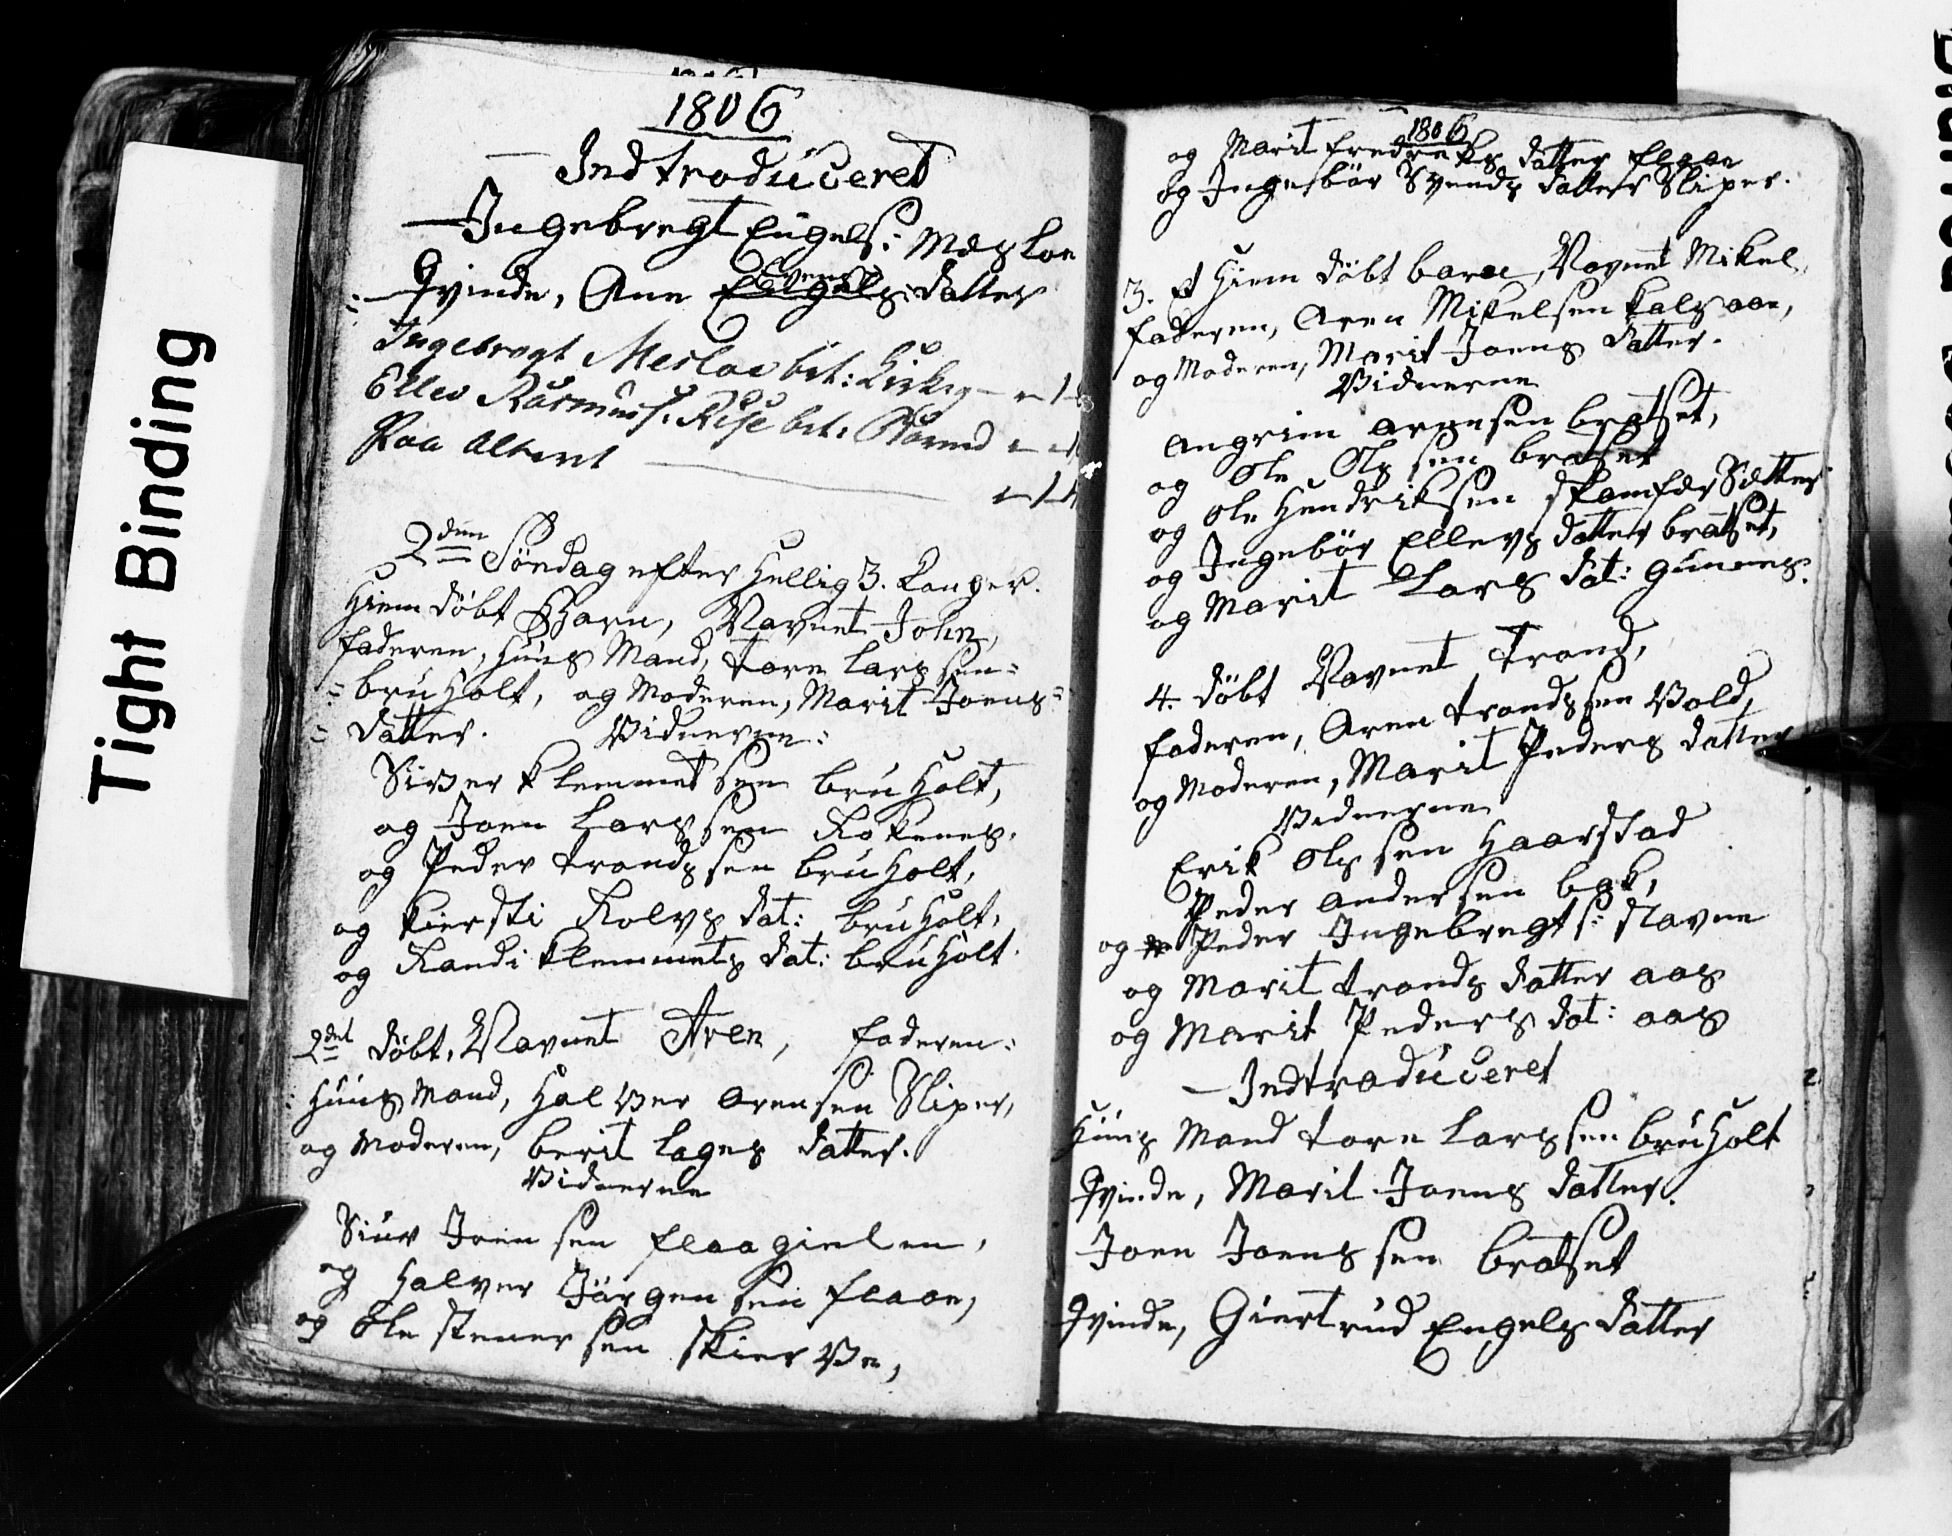 Tight Binding
1806
Indtroduceret
Ingebregt Engels: Mæsloe
Qvinde, Ane Engels Svens: datter
Ingebregt Mesloe bet: Kirken
Ellev Rasmuss: Rise bet: Barnd
Paa Alteret
2den Søndag efter Hellig 3. Konger.
Hiem døbt Barn, Navnet John,
faderen, Huus Mand, tore Lars sen
bruholt, og Moderen, Marit Joens
datter. Vidnerne:
Siver klemmet sen bruholt,
og Joen Lars sen
og Peder tronds sen bruholt,
og kiersti Rolvs dat: bruholt,
og Randi klemmets dat: bruholt.
2det døbt, Navnet Aren, faderen:
Huus Mand, Halver Arensen Sliper,
og Moderen, berit Lages datter.
Vidnerne
Siur Joen sen flaagielen,
og Halver Jørgen sen flaae,
og Ole stener sen skierve,
1806
og Marit fredreks datter flaae
og Ingebør Svends datter Sliper.
3. Et Hiem døbt barn, Navnet Mikel,
faderen, Aren Mikelsen kalsaae,
og Moderen, Marit Joens datter.
Vidnerne
Angrim arnesen bratset,
og Ole Ols sen bratset
og Ole Hendriksen skamfersætter
og Ingebør Ellevs datter bratset,
og Marit Lars dat: gunnes.
4. døbt Navnet Trond,
faderen, Aren tronds sen Vold,
og Moderen, Marit Peders datter
Vidnerne
Erik Ols sen Haarstad
Peder Andersen bak,
og Peder Ingebregts: stavne
og Marit tronds datter aas
og Marit Peders dat: aas
Indtroduceret
Huus Mand tore Lars sen bruholt
Qvinde, Marit Joens datter.
Joen Joens sen bratset
Qvinde, Giertrud Engels datter